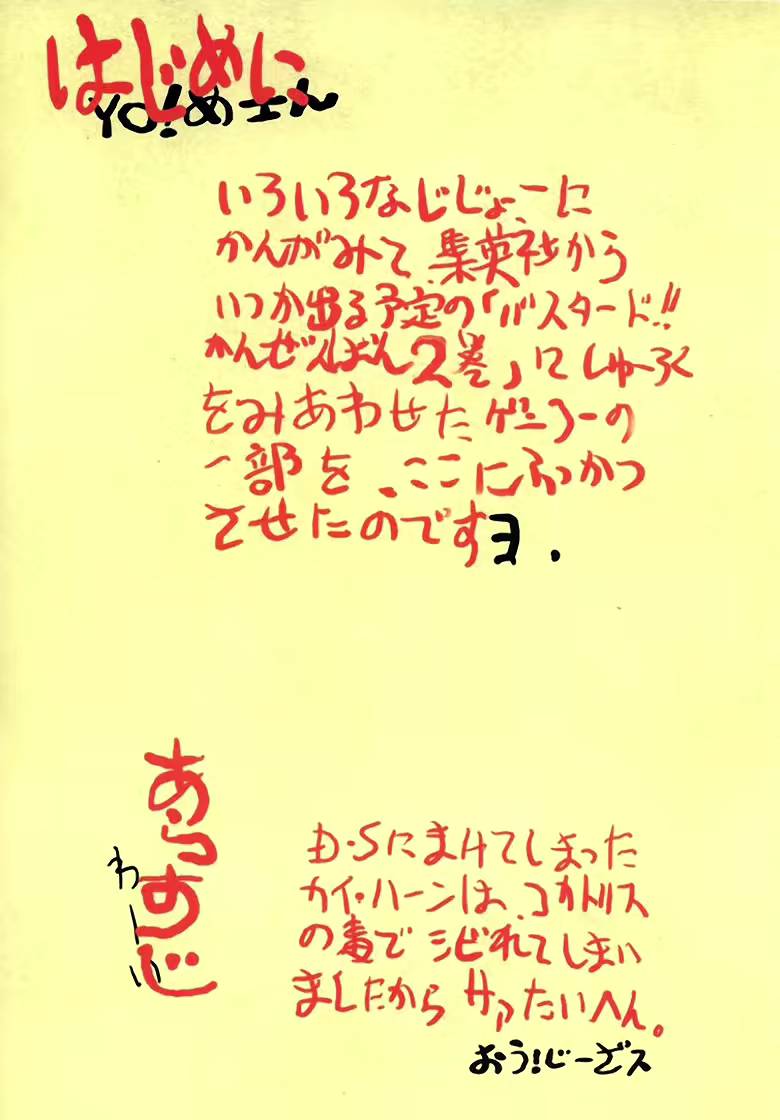 はじめに
YO!めェん
いろいろなじじょーに
かんがみて、集英社から
いつか出る予定の「バスタード!!
かんぜんばん2巻」にしゅーろく
をみあわせたゲンコーの
一部を、ここにふっかつ
させたのですヨ.
あらすじ
わーい
D・Sにまけてしまった
カイ・ハーンは、コカトリス
の毒でシビれてしまい
ましたからサァたいへん。
おう!じーざス